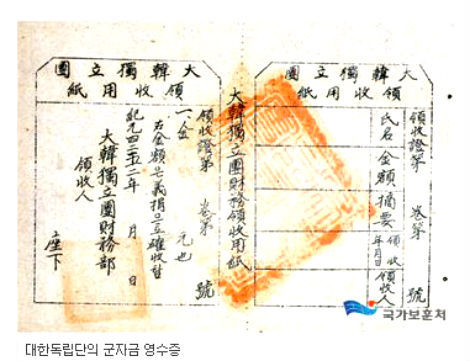 大韓獨立團
領收用紙
領收證第 卷第 號
氏名
金額
摘要
領收年月日
領收人
大韓獨立團財務領收用紙
大韓獨立團
領收用紙
領收證第 卷第 號
一、金 元也
右金額은義捐으로確收함
紀元四二五二年 月 日
大韓獨立團財務部
領收人
座下
국가보훈처
대한독립단의 군자금 영수증